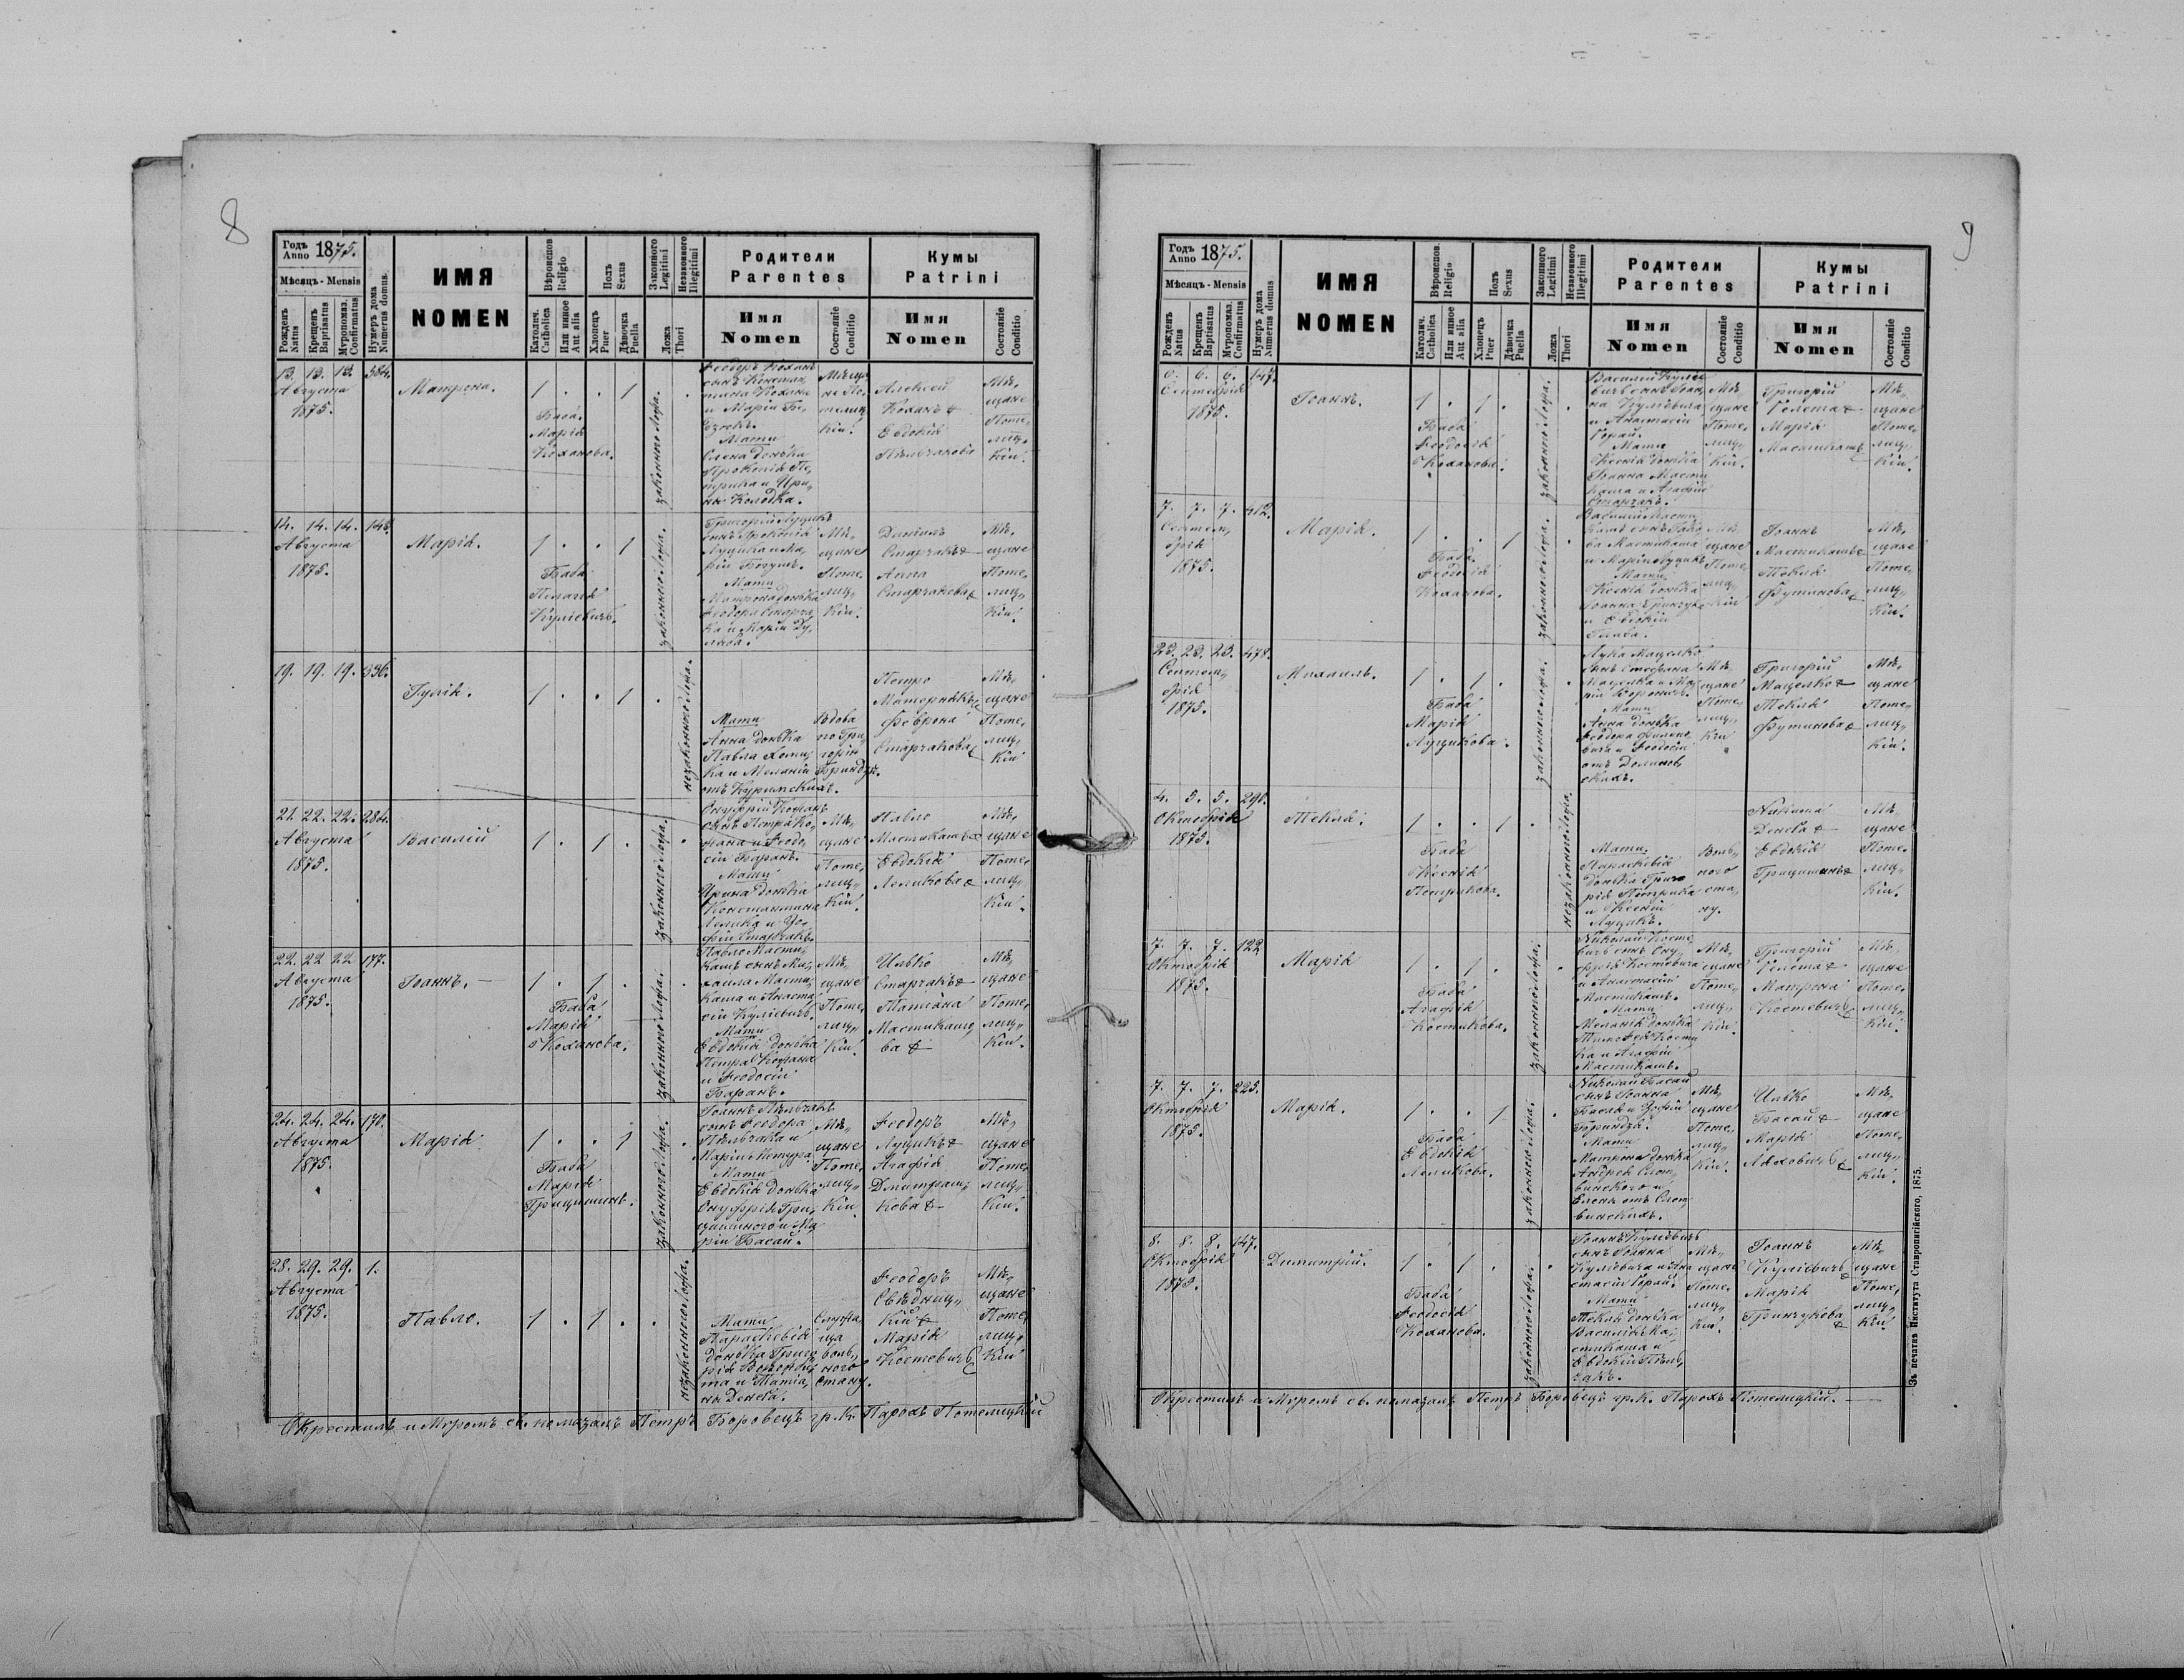 8
Годъ Anno 1875.
Мѣсяцъ - Mensis
Рожденъ Natus
Крещенъ Baptisatus
Муропомаз. Confirmatus
Нумеръ дома Numerus domus.
ИМЯ
NOMEN
Вѣроиспов Religio
Католич. Catholica
Или иное Aut alia
Полъ Sexus
Хлопецъ Puer
Дѣвочка Puella
Законного Legitimi
Незаконного Illegitimi
Ложа Thori
Родители
Parentes
Имя
Nomen
Состоянiе Conditio
Кумы
Patrini
Имя
Nomen
Состоянiе Conditio
13. 13. 13. 384.
Августа
1875.
Матрона.
1 . . 1 .
Баба
Марія
Коханова.
законного ложа.
Феодоръ Коханъ
сынъ
Коханa
и Марiи
Мати
Олена донька
Прокопія Пе,
трика и Ири,
ны Колодка.
Алексей
Коханъ &
Евдокія
Пѣльчакова
Мѣ,
щане
Поте,
лиц,
кіи.
14. 14. 14. 148.
Августа
1875.
Марія.
1 . . 1
Баба
Пелагія
Кулѣевичъ.
законного ложа.
Григорій Луцикъ
сынъ Прокопія
Луцика и Ма,
ріи Богушъ.
Мати
Матрона донька
Феодора Старча,
ка и Маріи Ду,
Мѣ,
щане
Поте,
лиц,
кіи.
Данiилъ
Старчакъ &
Анна
Старчакова &
Мѣ,
щане
Поте,
лиц,
кіи.
19. 19. 19. 336.
Юлія.
1 . . 1 .
незаконного ложа.
Мати
Анна донька
Павла Хоми,
ка и Меланіи
отъ Куримскихъ.
Вдова
по Гри,
горію
Бриндзѣ.
Петро
Матернякъ &
Феврона
Старчакова &
Мѣ,
щане
Поте,
лиц,
кіи
21. 22. 22. 284.
Августа
1875.
Василій
1 . 1 . .
законного ложа.
Онуфрій Кофанъ
сынъ Петра Ко,
фана и Феодо,
сіи Баранъ.
Мати
Ирина донька
Константина
Лелика и Зо,
фіи Старчакъ.
Мѣ,
щане
Поте,
лиц,
кіи.
Павло
Мастикашъ &
Евдокія
Леликова &
Мѣ,
щане
Поте,
лиц,
кіи.
22. 22 22 177.
Августа
1875.
Іоаннъ. —
1 . 1 . .
Баба
Марія
Коханова.
законного ложа.
Павло Масти,
кашъ сынъ Ми,
хаила Масти,
каша и Анаста,
сіи Кулѣевичъ.
Мати
Евдокія донька
Петра Кофана
и Феодосіи
Баранъ.
Мѣ,
щане
Поте,
лиц,
кіи.
Илько
Старчакъ &
Татіана
Мастикашо,
ва &
Мѣ,
щане
Поте,
лиц,
кіи.
24. 24. 24. 170.
Августа
1875.
Марія
1 . . 1 .
Баба
Марія
Грицишинъ.
законного ложа.
Іоаннъ Пѣльчакъ
сынъ Феодора
Пѣльчака и
Маріи
Мати
Евдокія донька
Онуфрія Гри,
цишиного и Ма,
ріи Басай.
Мѣ,
щане
Поте,
лиц,
кіи.
Феодоръ
Луцикъ &
Агафія
Дмитраш,
кова &
Мѣ,
щане
Поте,
лиц,
кіи.
28. 29. 29. 1.
Августа
1875.
Павло.
1 . 1 . .
незаконного ложа.
Мати
Параскевія
донька Григо
рія
та и Татіа,
ны Денега.
Служа,
ща
воль,
ного
стану.
Феодоръ
Свѣдниц,
кій &
Марія
Костевичъ &
Мѣ,
щане
Поте,
лиц,
кіи
Окрестилъ и Мѵромъ св. помазалъ Петръ Боровецъ гр. к. Парохъ Потелицкій
9
Годъ Anno 1875.
Мѣсяцъ - Mensis
Рожденъ Natus
Крещенъ Baptisatus
Муропомаз. Confirmatus
Нумеръ дома Numerus domus
ИМЯ
NOMEN
Вѣроиспов. Religio
Католич. Catholica
Или иное Aut alia
Полъ Sexus
Хлопецъ Puer
Дѣвочка Puella
Законного Legitimi
Незаконного Illegitimi
Ложа Thori
Родители
Parentes
Имя
Nomen
Состоянiе Conditio
Кумы
Patrini
Имя
Nomen
Состоянiе Conditio
6. 6. 6. 147.
Септембрія
1875.
Іоаннъ.
1 . 1 . .
Баба
Феодосія
Коханова.
законного ложа.
Василій Кулѣе
вичъ сынъ Іоан,
на Кулѣевича
и Анастасіи
Горай.
Мати
Ксенія донька
Іоанна Масти
каша и Агафіи
Старчакъ.
Мѣ,
щане
Поте,
лиц,
кіи.
Григорій
Голета &
Марія
Мастикашъ
Мѣ,
щане
Поте,
лиц,
кіи.
7. 7. 7. 412.
Септем,
брія
1875.
Марія.
1 . . 1 .
Баба
Феодосія
Коханова.
законного ложа.
Василій Масти,
кашъ сынъ
Мастикаша
и Маріи Луцикъ
Мати
Ксенія донька
Іоанна
и Евдокіи
Мѣ,
щане
Поте,
лиц,
кіи
Іоаннъ
Мастикашъ &
Текля
Футимова &
Мѣ,
щане
Поте,
лиц,
кіи.
23. 23. 23. 478.
Септем,
брія
1875.
Михаилъ.
1 . 1 . .
Баба
Марія
Луцикова.
законного ложа.
Лука Мацелко
сынъ Стефана
Мацелка и Ма,
ріи
Мати
Анна донька
Феодора
и Феодосіи
отъ Долинов,
скихъ.
Мѣ,
щане
Поте,
лиц,
кіи
Григорій
Мацелко &
Текля
Футимова &
Мѣ,
щане
Поте,
лиц,
кіи.
4. 5. 5. 290.
Октобрія
1875.
Текля.
1 . . 1 .
Баба
Ксенія
Петрикова.
незаконного ложа.
Мати
Параскевія
донька Григо
рія Петрика
и Ксеніи
Луцикъ.
Воль,
ного
ста,
ну.
Никита
Денега &
Евдокія
Грицишинъ &
Мѣ,
щане
Поте,
лиц,
кіи.
7. 7. 7. 122
Октобрія
1875.
Марія
1 . 1 . .
Баба
Агафія
Костикова.
законного ложа.
Николай Косте,
вичъ сынъ Ону,
фрія Костевича
и Анастасіи
Мастикашъ.
Мати
Меланія донька
Тимофея Кости
ка и Агафіи
Мастикашъ.
Мѣ,
щане
Поте,
лиц,
кіи.
Григорій
Голета &
Матрона
Костевичъ &
Мѣ,
щане
Поте,
лиц,
кіи.
7. 7. 7. 225.
Октобрія
1875.
Марія.
1 . . 1 .
Баба
Евдокія
Леликова.
законного ложа.
Николай Басай
сынъ Іоанна
Басая и Зофіи
Бриндза.
Мати
Матрона донька
Андрея Слот,
винского и
Елены отъ Слот,
винскихъ.
Мѣ,
щане
Поте,
лиц,
кіи.
Илько
Басай &
Марія
Ляховичъ &
Мѣ,
щане
Поте,
лиц,
кіи.
8. 8. 8. 147.
Октобрія
1875
Димитрій.
1 . 1 . .
Баба
Феодосія
Коханова.
законного ложа.
Іоаннъ Кулѣевичъ
сынъ Іоанна
Кулѣевича и Ана
стасіи Горай.
Мати
Текля донька
Василія Ма,
стикаша и
Евдокіи Пѣль,
чакъ.
Мѣ,
щане
Поте,
лиц,
кіи.
Іоаннъ
Кулѣевичъ &
Марія
Гринчукова &
Мѣ,
щане
Поте,
лиц,
кіи.
Окрестилъ и Мѵромъ св. помазалъ Петръ Боровецъ гр. к. Парохъ Потелицкій. —
Зъ печатнѣ Института Ставропигійского, 1875.